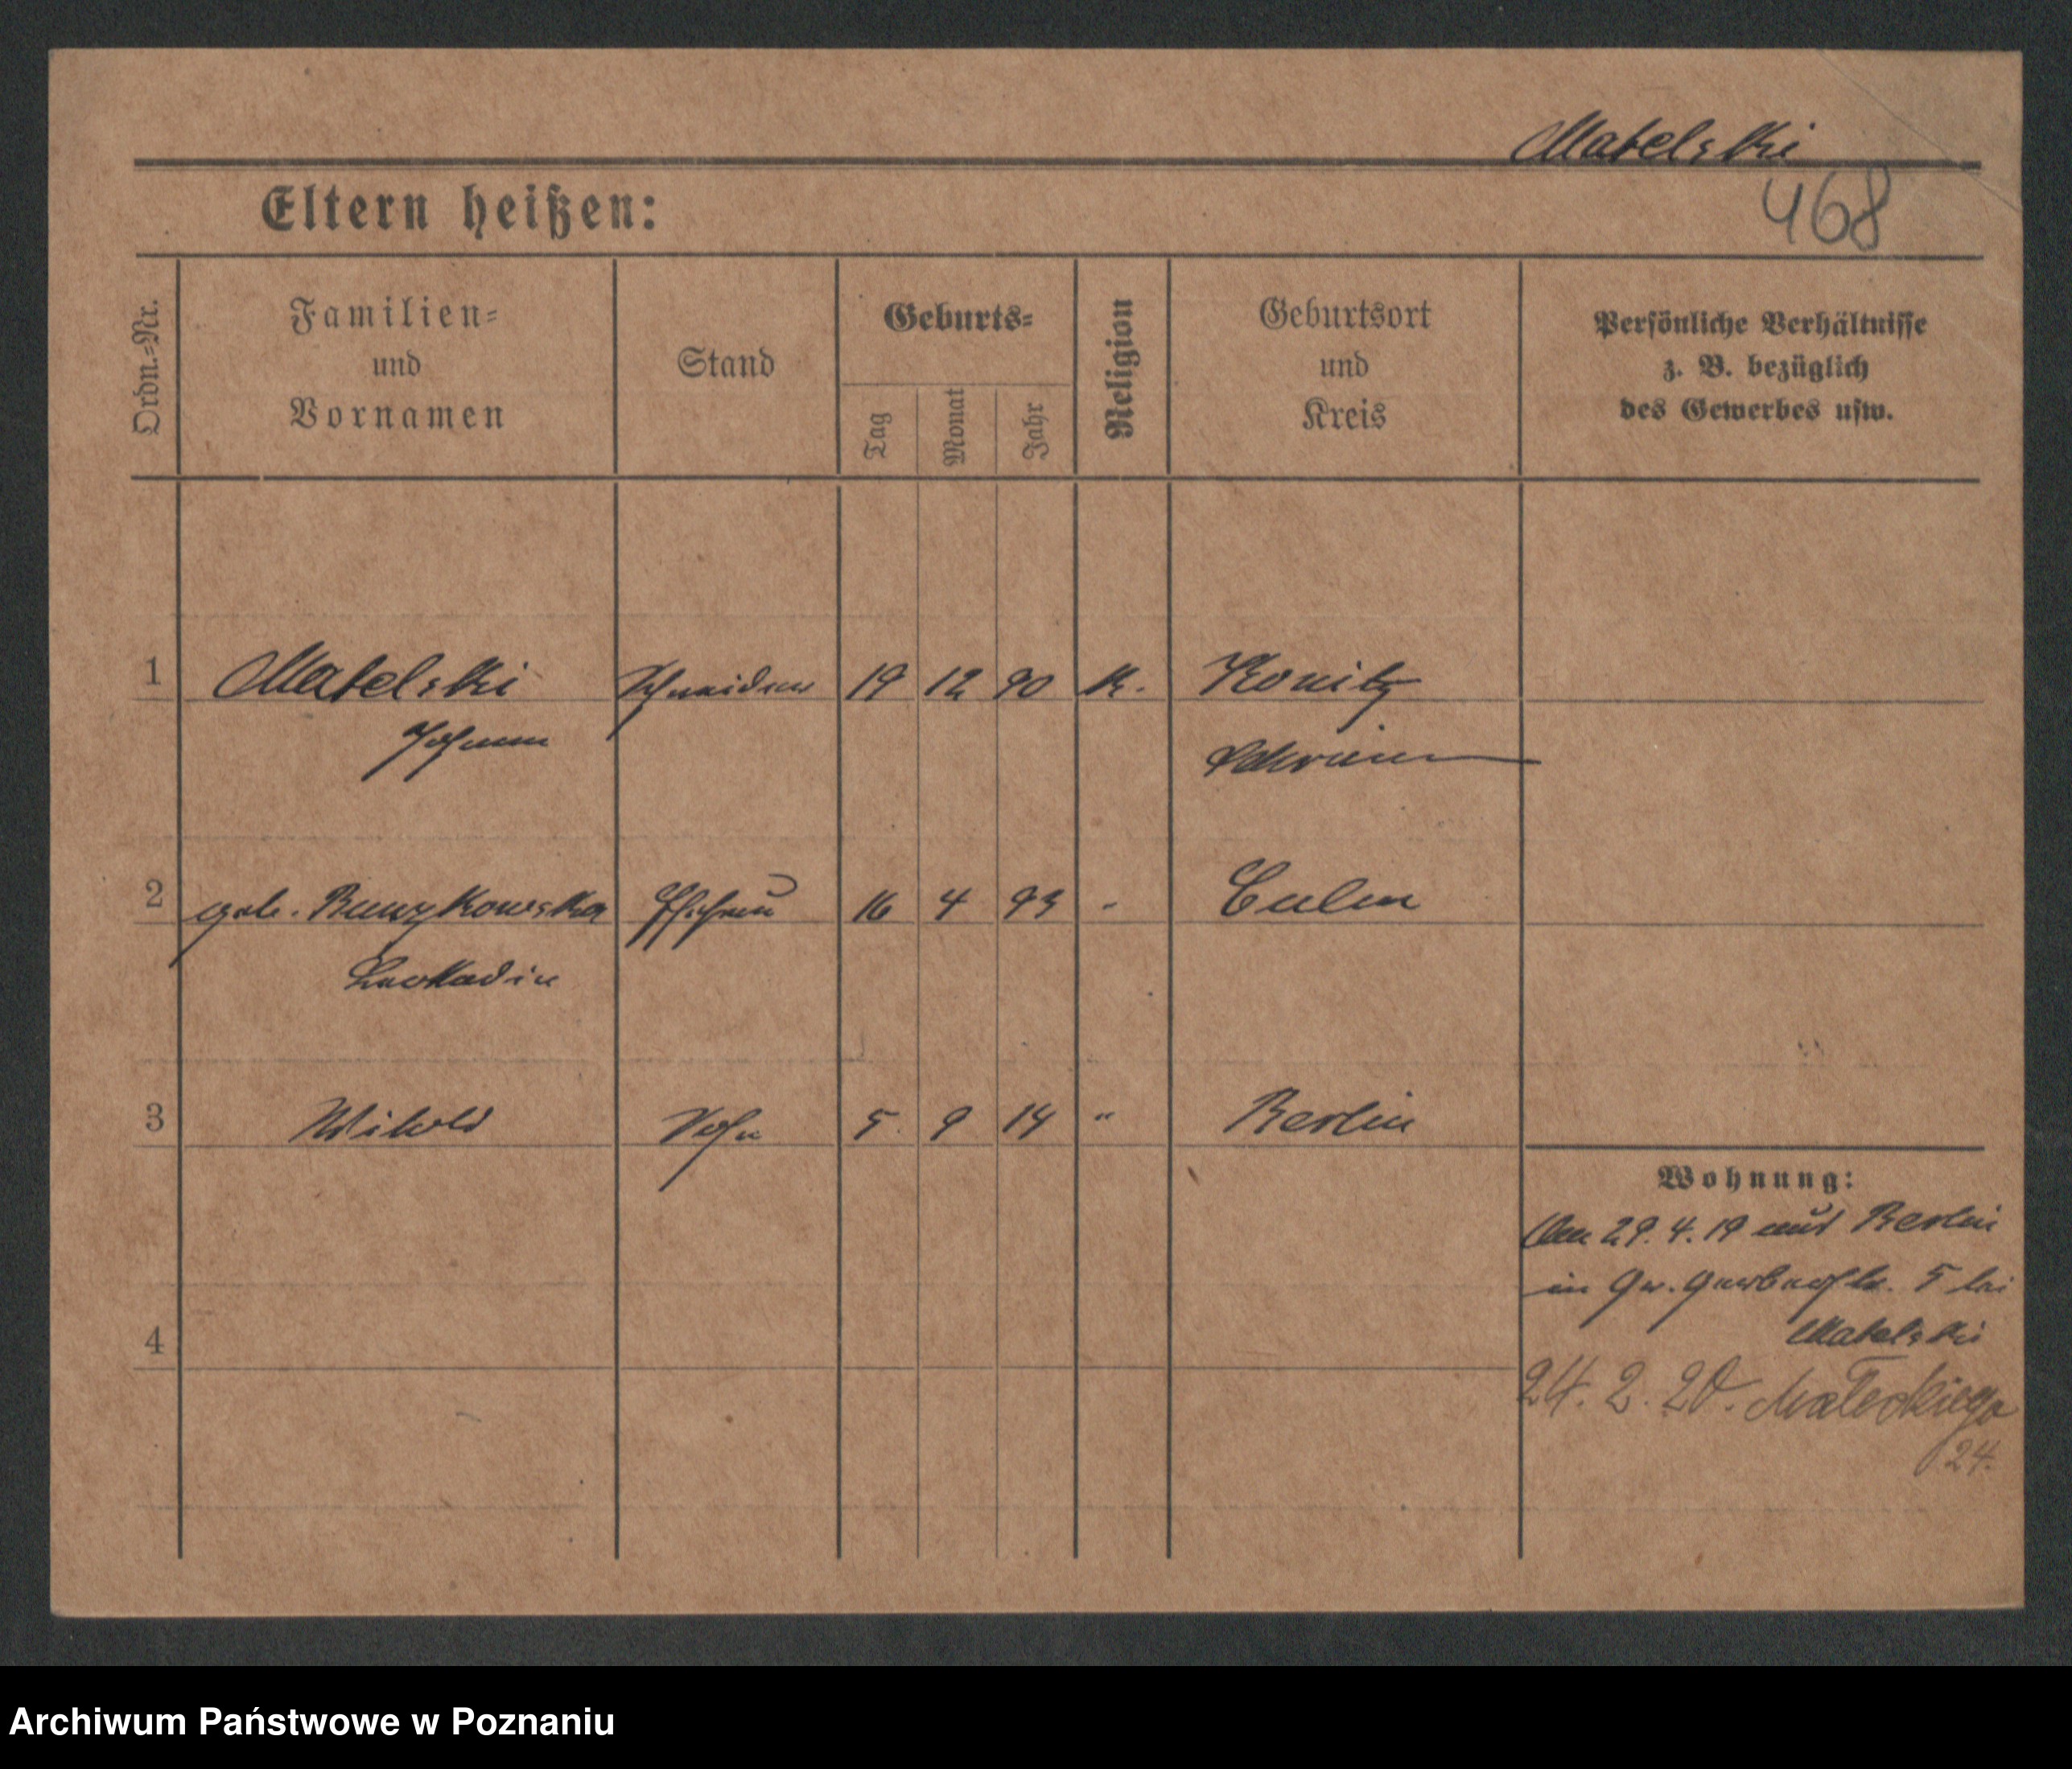 Matelski
468
Eltern heißen:
Ordn.-Nr.
Familien-
und
Vornamen
Stand
Geburts-
Tag
Monat
Jahr
Religion
Geburtsort
und
Kreis
Persönliche Verhältnisse
z. B. bezüglich
des Gewerbes usw.
1 Matelski Schneider 19 12 90 K. Konitz
Johann Schrimm
2 geb. Ehefrau 16 4 93 " Culm
Leokadia
3 Witold Sohn 5 9 14 " Berlin
Wohnung:
29. 4. 19 aus Berlin
in Gr. Gerberstr. 5 bei
Matelski
4
24. 2. 20. Małeckiego
24.
Archiwum Państwowe w Poznaniu